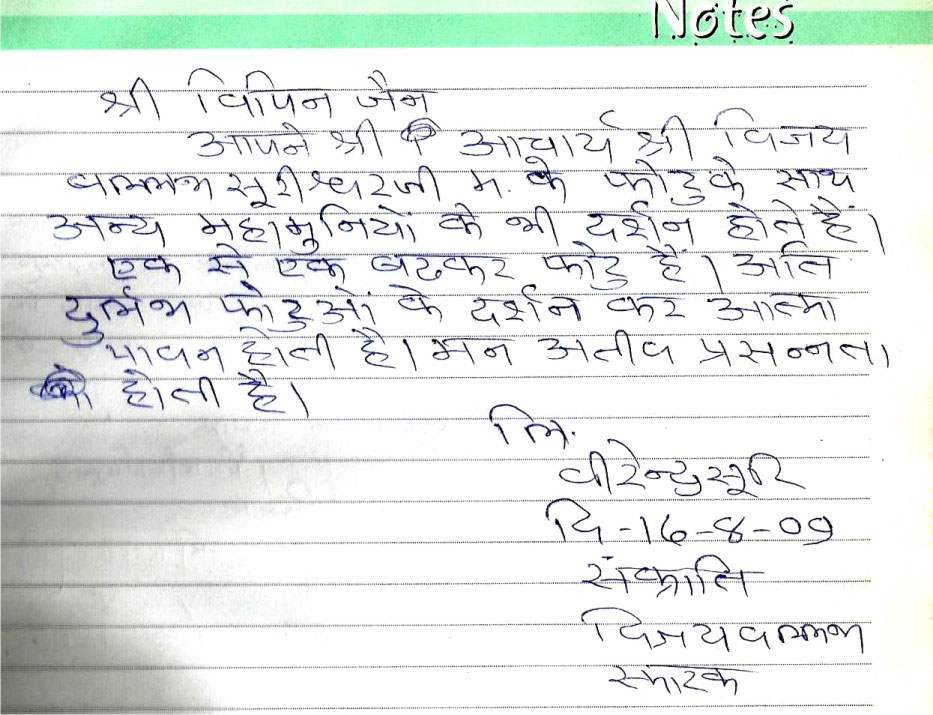 Notes
श्री विपिन जैन
आपने श्री आचार्य श्री विजय
वल्लभ सूरीश्वरजी म. के फोटुके साथ
अन्य महामुनियों के भी दर्शन होते हैं।
एक से एक बढकर फोटु हैं। अति
दुर्लभ फोटुओं के दर्शन कर आत्मा
पावन होती है। मन अतीव प्रसन्नता
होती है।
लि.
वीरेन्द्रसूरि
दि-16-8-09
संक्राति
विजयवल्लभ
स्मारक